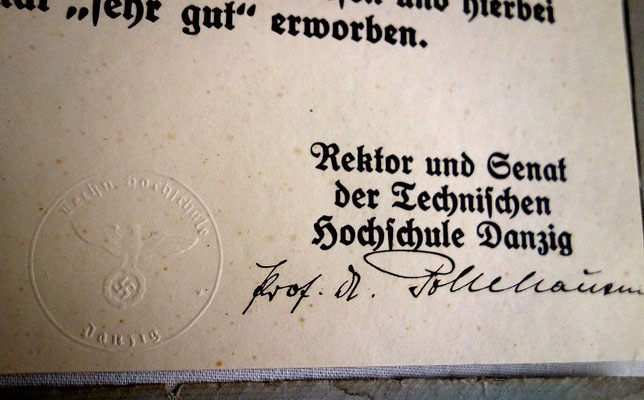 und hierbei
„sehr gut“ erworben.
Rektor und Senat
der Technischen
Hochschule Danzig
Prof. Dr. Pohlhausen
Techn. Hochschule
Danzig